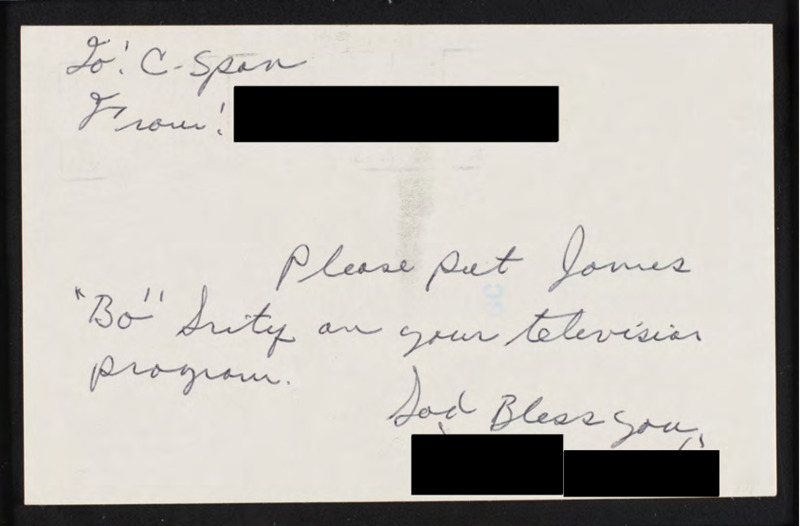 To: C-Span
From:
Please put James
"Bo" Gritz on your television
program.
God Bless you,